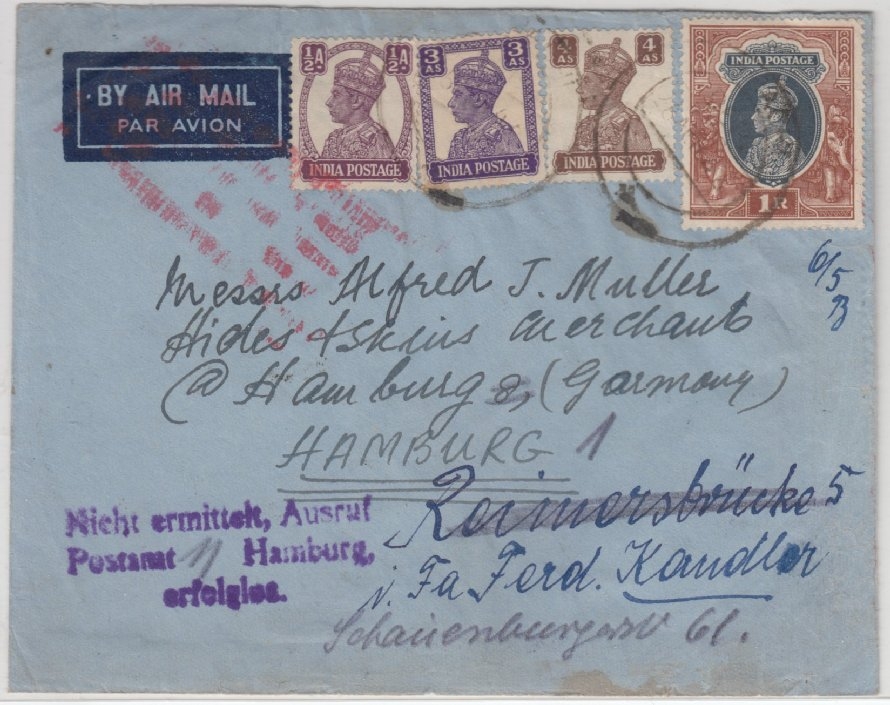 BY AIR MAIL
PAR AVION
½ A. ½ A.
INDIA POSTAGE
3 AS 3 AS
INDIA POSTAGE
4 AS 4 AS
INDIA POSTAGE
INDIA POSTAGE
1 R
6/5
Messrs Alfred J. Muller
Hides & Skins Merchants
@ Hamburg 8, (Garmony)
HAMBURG 1
Reimersbrücke 5
i. Fa Ferd. Kandler
Schauenburgerstr 61.
Nicht ermittelt, Ausruf
Postamt 11 Hamburg,
erfolglos.